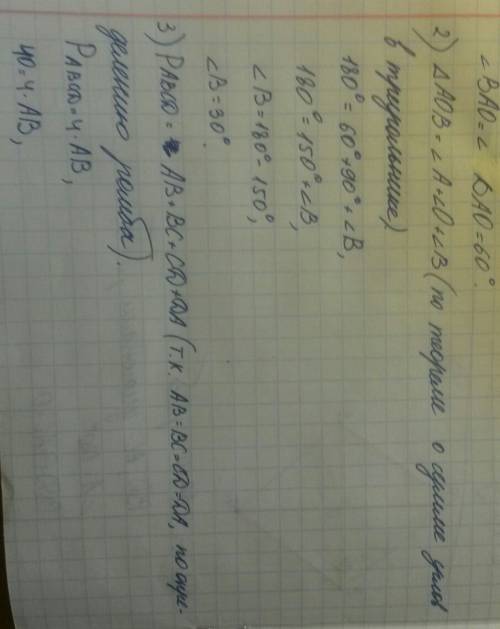 ∠BAO=∠DAO=60°.
2) ΔAOB=∠A+∠O+∠B (по теореме о сумме углов
в треугольнике)
180°=60°+90°+∠B,
180°=150°+∠B,
∠B=180°-150°,
∠B=30°.
3) PABCD= AB+BC+CD+DA (т.к. AB=BC=CD=DA, по опре-
делению ромба).
PABCD=4·AB,
40=4·AB,